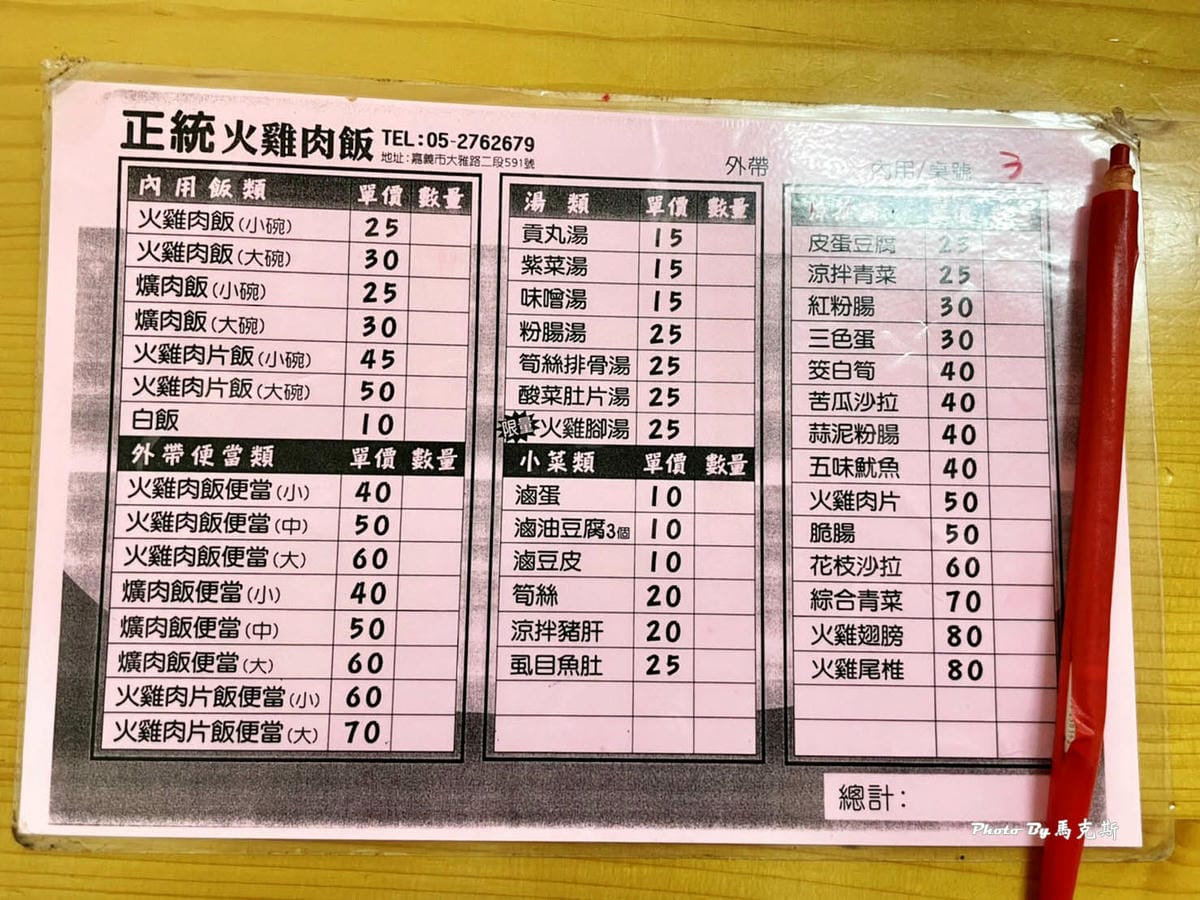 正統火雞肉飯 TEL:05-2762679
地址:嘉義市大雅路二段591號
外帶 內用/桌號 3
內用飯類 單價 數量
火雞肉飯(小碗) 25
火雞肉飯(大碗) 30
爌肉飯(小碗) 25
爌肉飯(大碗) 30
火雞肉片飯(小碗) 45
火雞肉片飯(大碗) 50
白飯 10
外帶便當類 單價 數量
火雞肉飯便當(小) 40
火雞肉飯便當(中) 50
火雞肉飯便當(大) 60
爌肉飯便當(小) 40
爌肉飯便當(中) 50
爌肉飯便當(大) 60
火雞肉片飯便當(小) 60
火雞肉片飯便當(大) 70
湯類 單價 數量
貢丸湯 15
紫菜湯 15
味噌湯 15
粉腸湯 25
筍絲排骨湯 25
酸菜肚片湯 25
限量 火雞腳湯 25
小菜類 單價 數量
滷蛋 10
滷油豆腐3個 10
滷豆皮 10
筍絲 20
涼拌豬肝 20
虱目魚肚 25
皮蛋豆腐 25
涼拌青菜 25
紅粉腸 30
三色蛋 30
筊白筍 40
苦瓜沙拉 40
蒜泥粉腸 40
五味魷魚 40
火雞肉片 50
脆腸 50
花枝沙拉 60
綜合青菜 70
火雞翅膀 80
火雞尾椎 80
總計:
Photo By 馬克斯